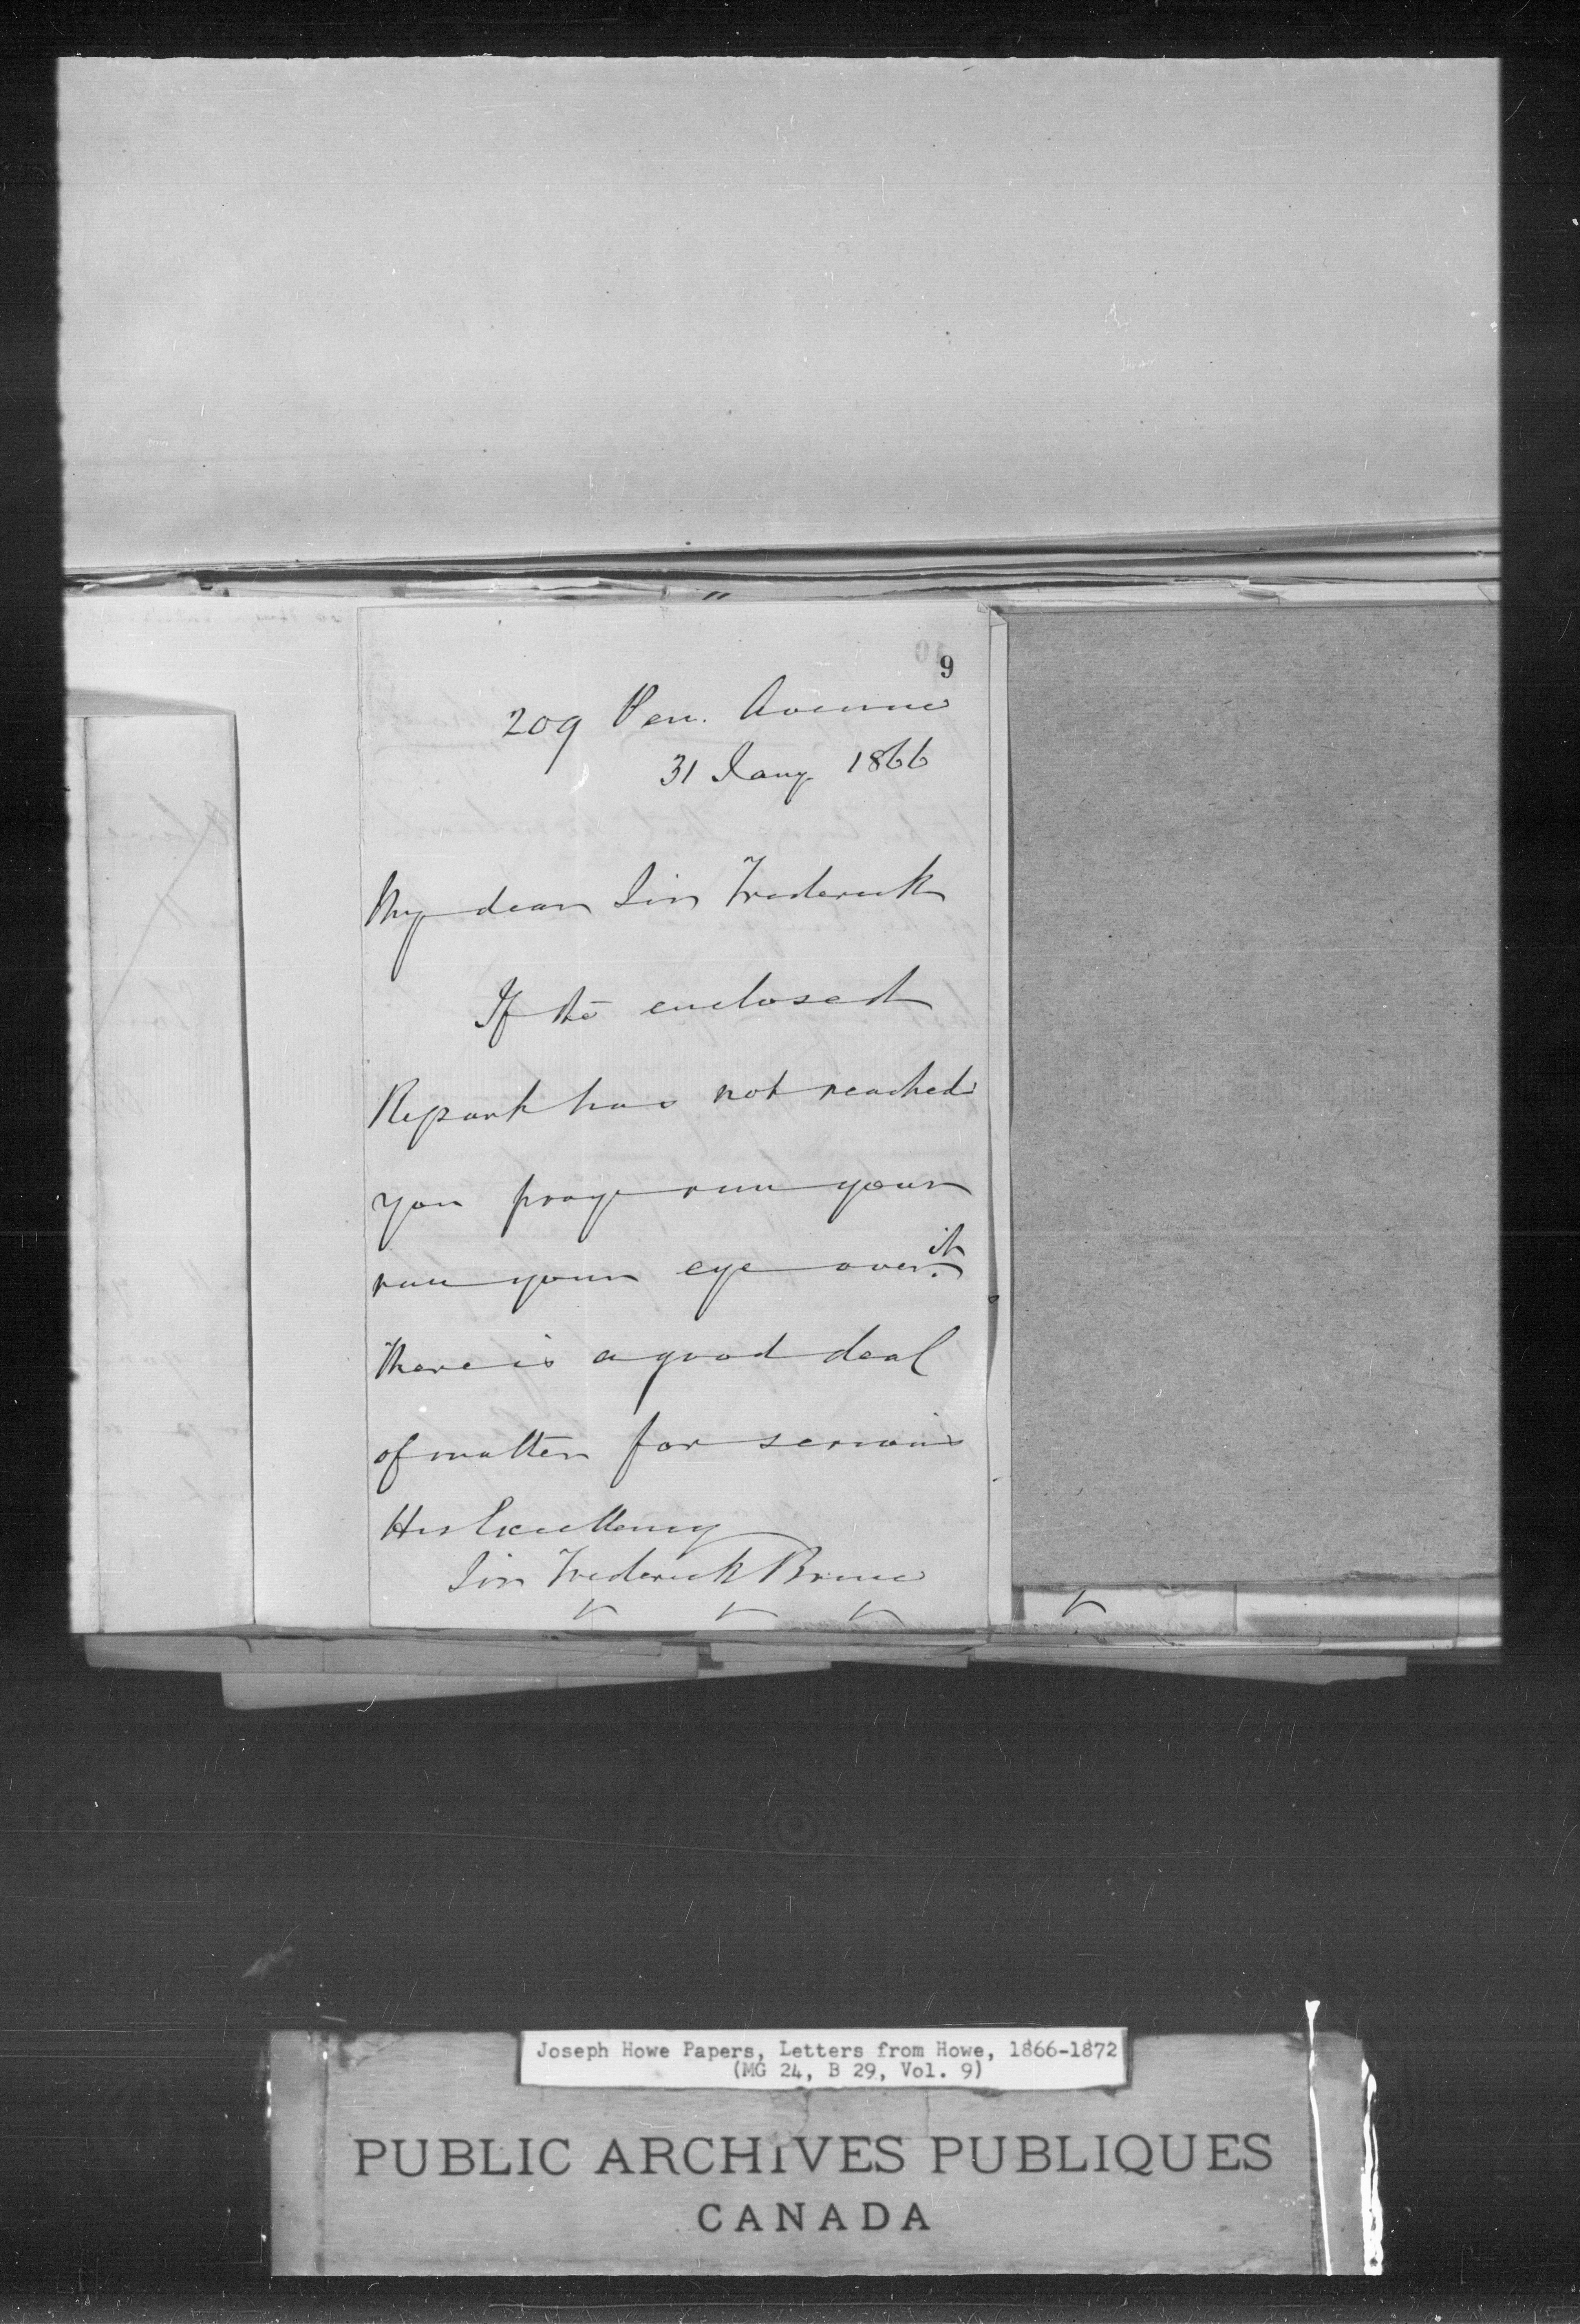 9
209 Pen. Avenue
31 Jany 1866
My dear Sir Frederick
If the enclosed
Report has not reached
you pray run your
run your eye over it.
There is a good deal
of matter for serious
His Excellency
Sir Frederick Bruce
Joseph Howe Papers, Letters from Howe, 1866-1872
(MG 24, B 29, Vol. 9)
PUBLIC ARCHIVES PUBLIQUES
CANADA